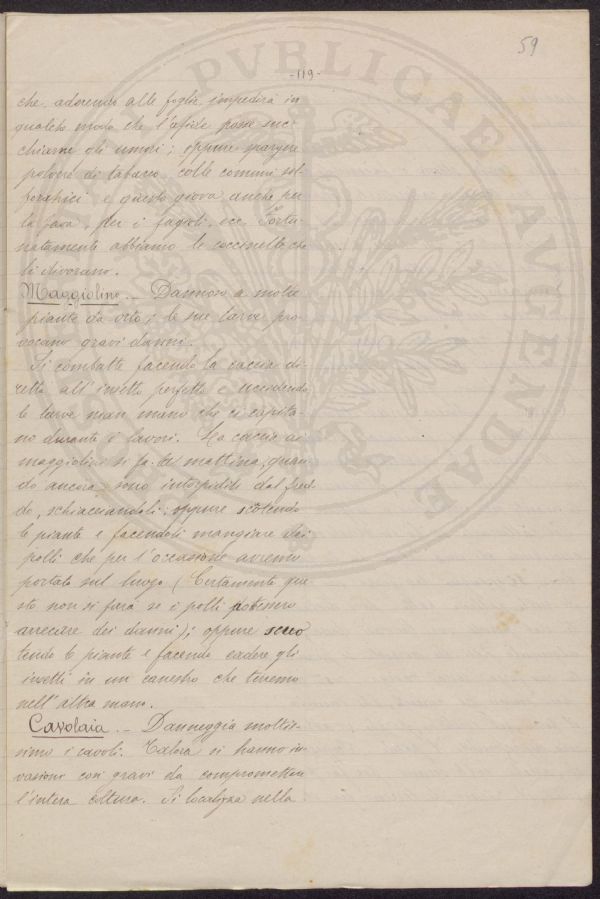 59
-119-
che, aderendo alle foglie, impedirà in
qualche modo che l'afide possa suc-
chiarne gli umori; oppure spargere
polvere di tabacco, colle comuni sol-
foratrici e questo giova anche per
la fava, per i fagioli, ecc. Fortu-
natamente abbiamo le coccinelle che
li divorano.
Maggiolino. — Dannoso a molte
piante da orto; le sue larve pro-
vocano gravi danni.
Si combatte facendo la caccia di-
retta all'insetto perfetto e uccidendo
le larve man mano che ci capita-
no durante i lavori. La caccia ai
maggiolini si fa di mattina, quan-
do ancora sono intorpiditi dal fred-
do, schiacciandoli; oppure scotendo
le piante e facendoli mangiare dai
polli che per l'occasione avremo
portato sul luogo (Certamente que-
sto non si farà se i polli potessero
arrecare dei danni); oppure scuo
tendo le piante e facendo cadere gli
insetti in un canestro che teniamo
nell'altra mano.
Cavolaia. — Danneggia moltis-
simo i cavoli. Talora si hanno in-
vasioni così gravi da compromettere
l'intera coltura. Si localizza nella
PVBLICAE AVGENDAE